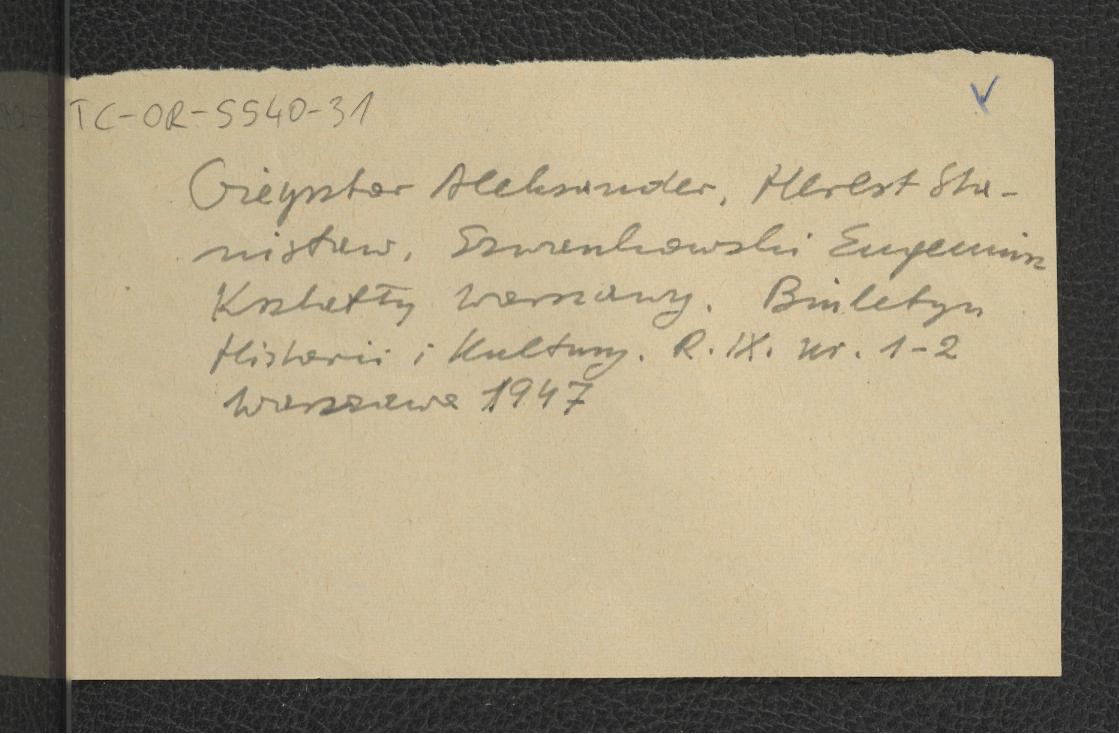 TC-OR-5540-31
Gieysztor Aleksander, Herbst Sta-
nisław, Szwankowski Eugeniusz
Kształty Warszawy. Biuletyn
Historii i Kultury. R. IX. nr. 1-2
Warszawa 1947